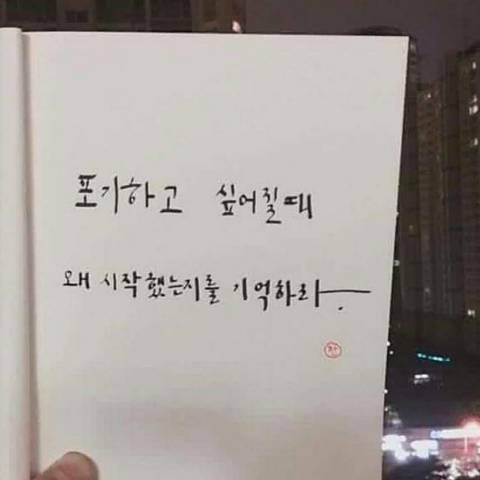 포기하고 싶어질때
왜 시작했는지를 기억하라.